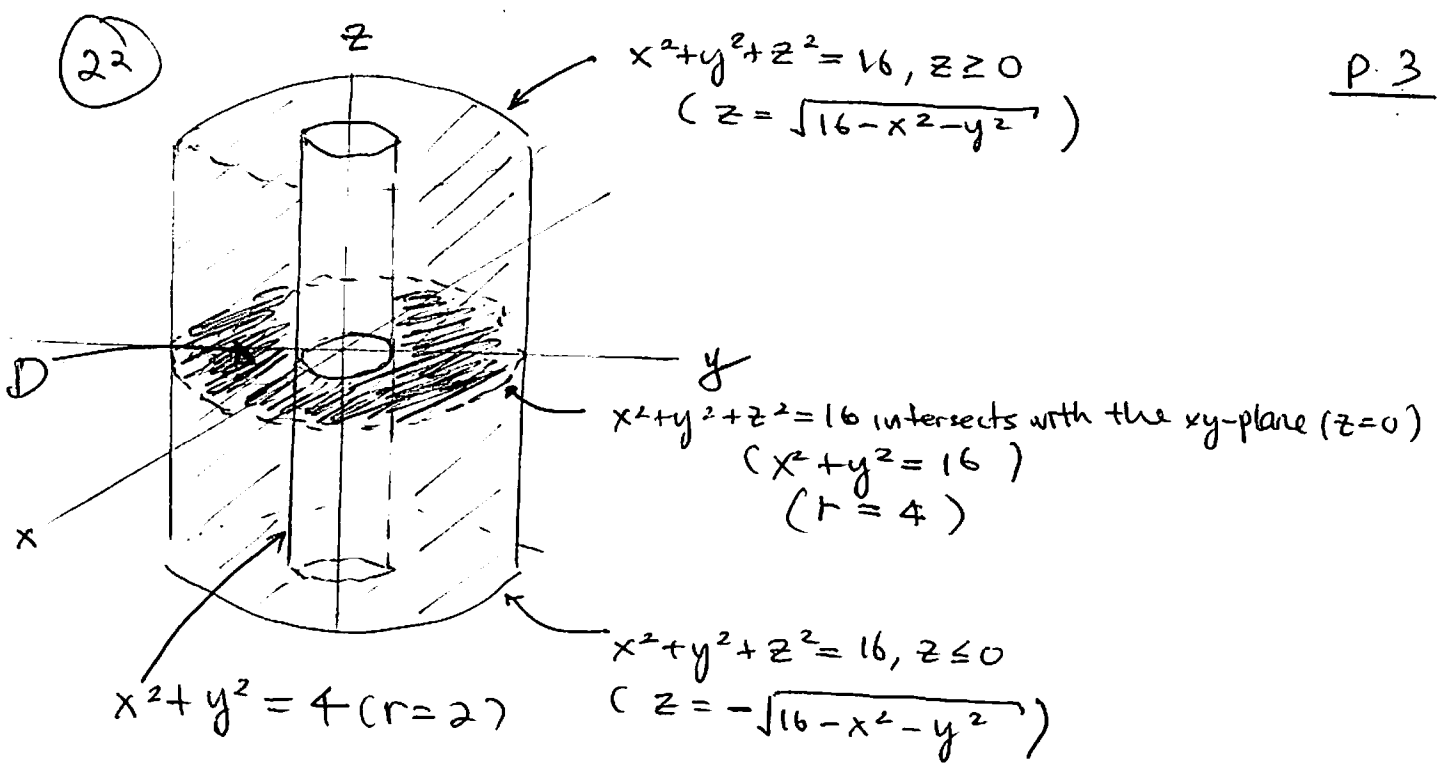 22
z
x²+y²+z²=16, z≥0
(z=√(16-x²-y²))
p. 3
D
y
x²+y²+z²=16 intersects with the xy-plane (z=0)
(x²+y²=16)
(r=4)
x
x²+y²+z²=16, z≤0
(z=-√(16-x²-y²))
x²+y²=4 (r=2)